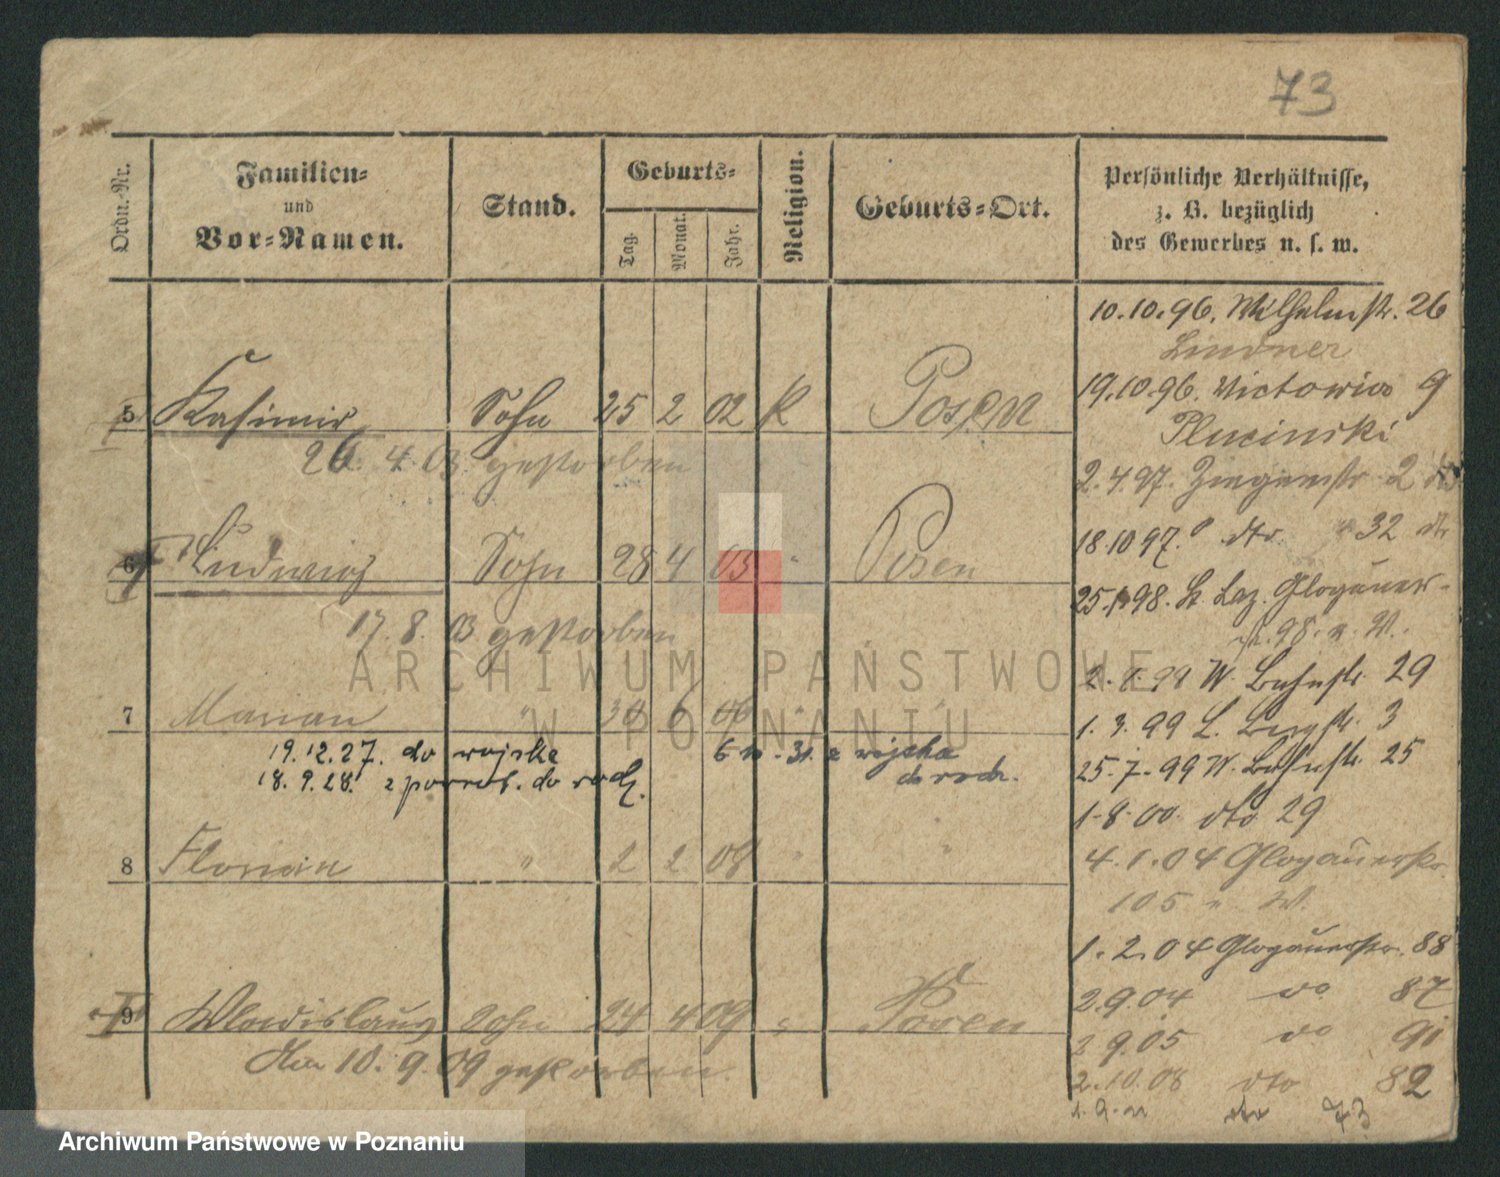 73
Ordn.-Nr.
Familien-
und
Vor-Namen.
Stand.
Geburts-
Tag.
Monat.
Jahr.
Religion.
Geburts-Ort.
Persönliche Verhältnisse,
z. B. bezüglich
des Gewerbes u. s. w.
5 Kasimir Sohn 25 2 02 K Posen
26. 4. 03. gestorben
6 Ludwig Sohn 28 4 03 " Posen
17. 8. 03 gestorben
7 Marian " 30 6 06 " "
19.12.27. do wojska
18. 9. 28. z powrot. do rodz.
6 10. 31. z wojska
do rodz.
8 Florian " 2 2 08 " "
9 Wladislaus Sohn 24 4 09 " Posen
den 10. 9. 09 gestorben
10.10.96. Wilhelmstr. 26
Lindner
19.10.96. Victoria 9
Plucinski
2.4.97. Ziegenstr 2
18.10 97. dto. " 32 dto
25. 98. St. Laz. Glogauer-
str. 98. a. W.
2. 99 W. Bahnstr. 29
1. 3. 99 L. Bergstr. 3
25.7.99 W. Bahnstr. 25
1.8.00. dto 29
4.1.04 Glogauerstr.
105 " W.
1.2.04 Glogauerstr. 88
2.9.04 do 87
2 9.05 do 91
2.10.08 dto 82
1.9. dto 73
ARCHIWUM PAŃSTWOWE
W POZNANIU
Archiwum Państwowe w Poznaniu